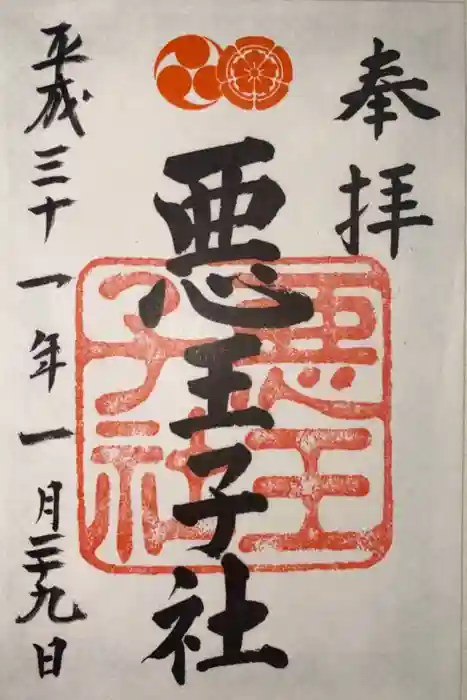 奉拝
悪王子社
悪王子社
平成三十一年一月二十九日